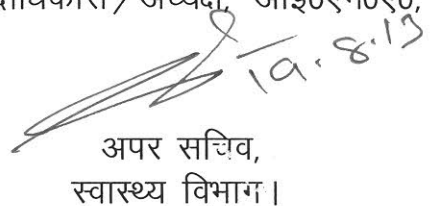 19.8.13
अपर सचिव,
स्वास्थ्य विभाग।